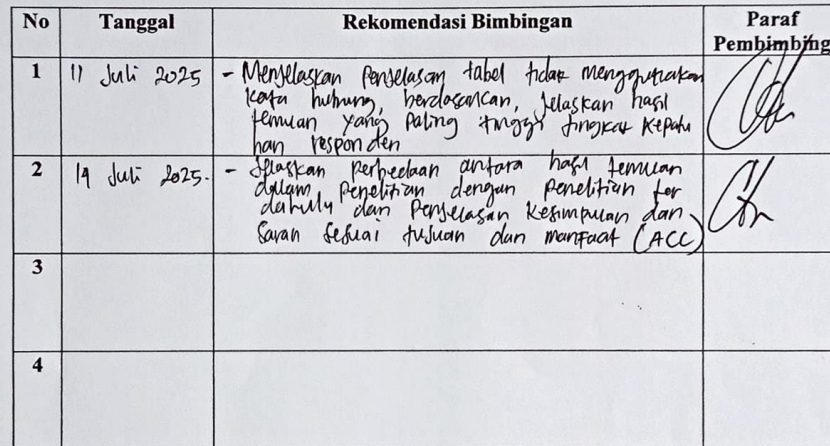 No Tanggal Rekomendasi Bimbingan Paraf Pembimbing
1 11 Juli 2025 - Menjelaskan penjelasan tabel tidak menggunakan
kata hubung, berdasarkan, jelaskan hasil
temuan yang paling tinggi tingkat kepatu
han responden
2 14 Juli 2025. - Jelaskan perbedaan antara hasil temuan
dalam penelitian dengan penelitian ter
dahulu dan penjelasan kesimpulan dan
saran sesuai tujuan dan manfaat (ACC)
3
4